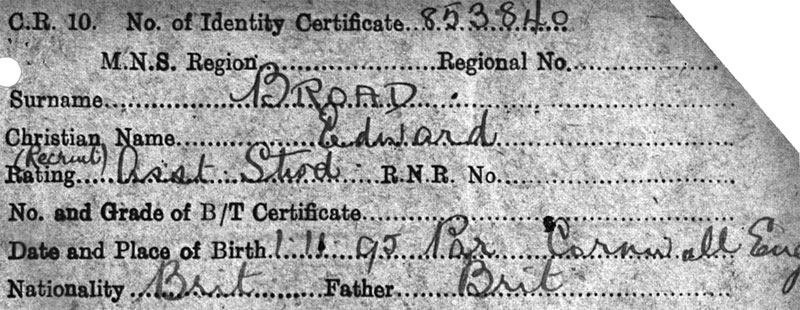 C.R. 10. No. of Identity Certificate..853840
M.N.S. Region..................Regional No..................
Surname..................BROAD..................
Christian Name..................Edward..................
(Recruit)
Rating.....Asst Stwd.....R.N.R. No..................
No. and Grade of B/T Certificate..................
Date and Place of Birth.1.11.95 Par Cornwall Eng
Nationality...Brit.......Father.......Brit.......